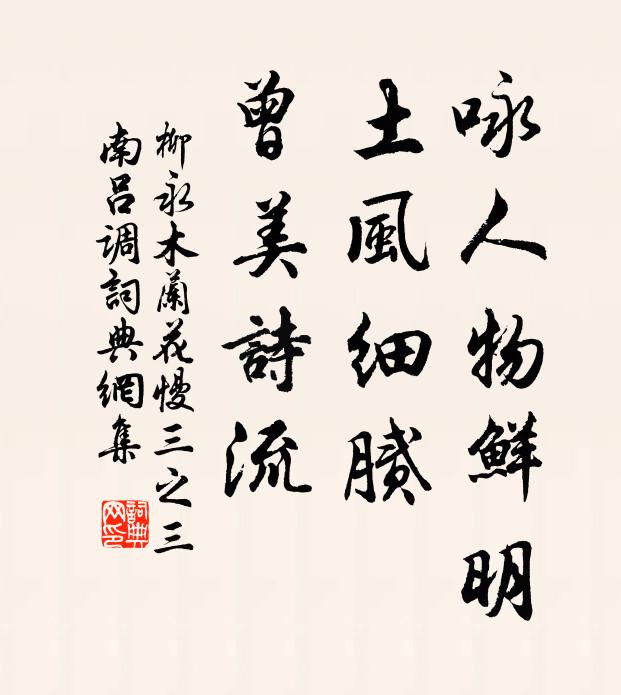 咏人物鮮明
土風細膩
曾美詩流
柳永木蘭花慢三之三
南呂调詞典網集
詞典网印